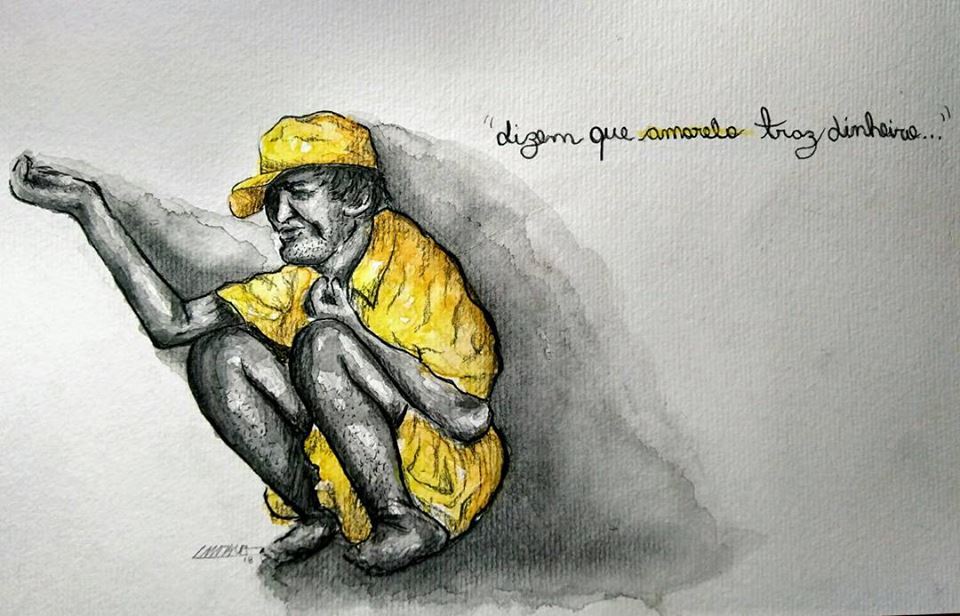 "dizem que amarelo traz dinheiro..."
18